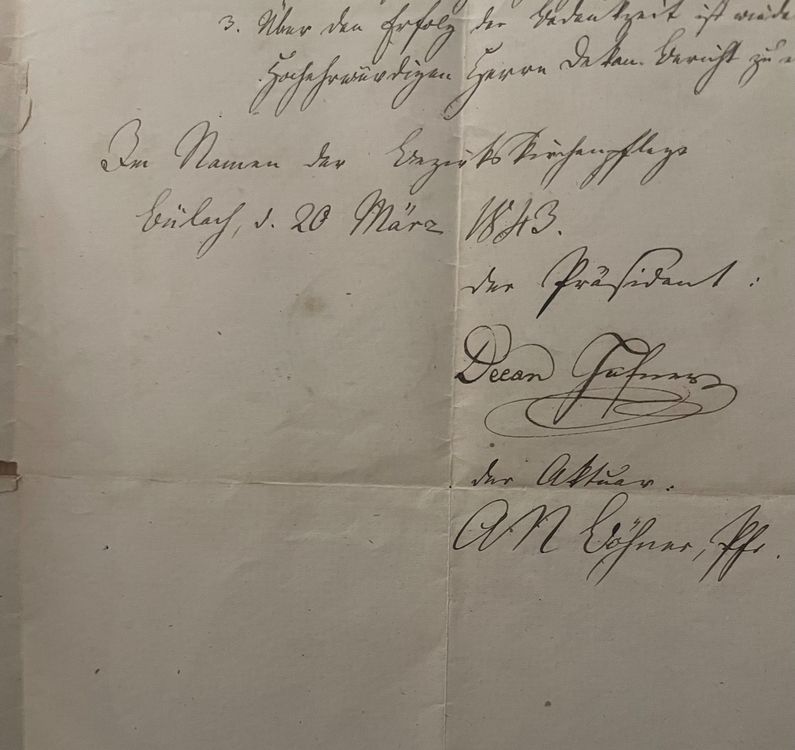 3. Über den Erfolg der Bedenkzeit ist wieder
Hochehrwürdigen Herrn Dekan Bericht zu
Im Namen der Bezirkskirchenpflege
Bülach, d. 20 März 1843.
der Präsident:
Decan Hafner
der Aktuar:
A N Böhner, Pfr.